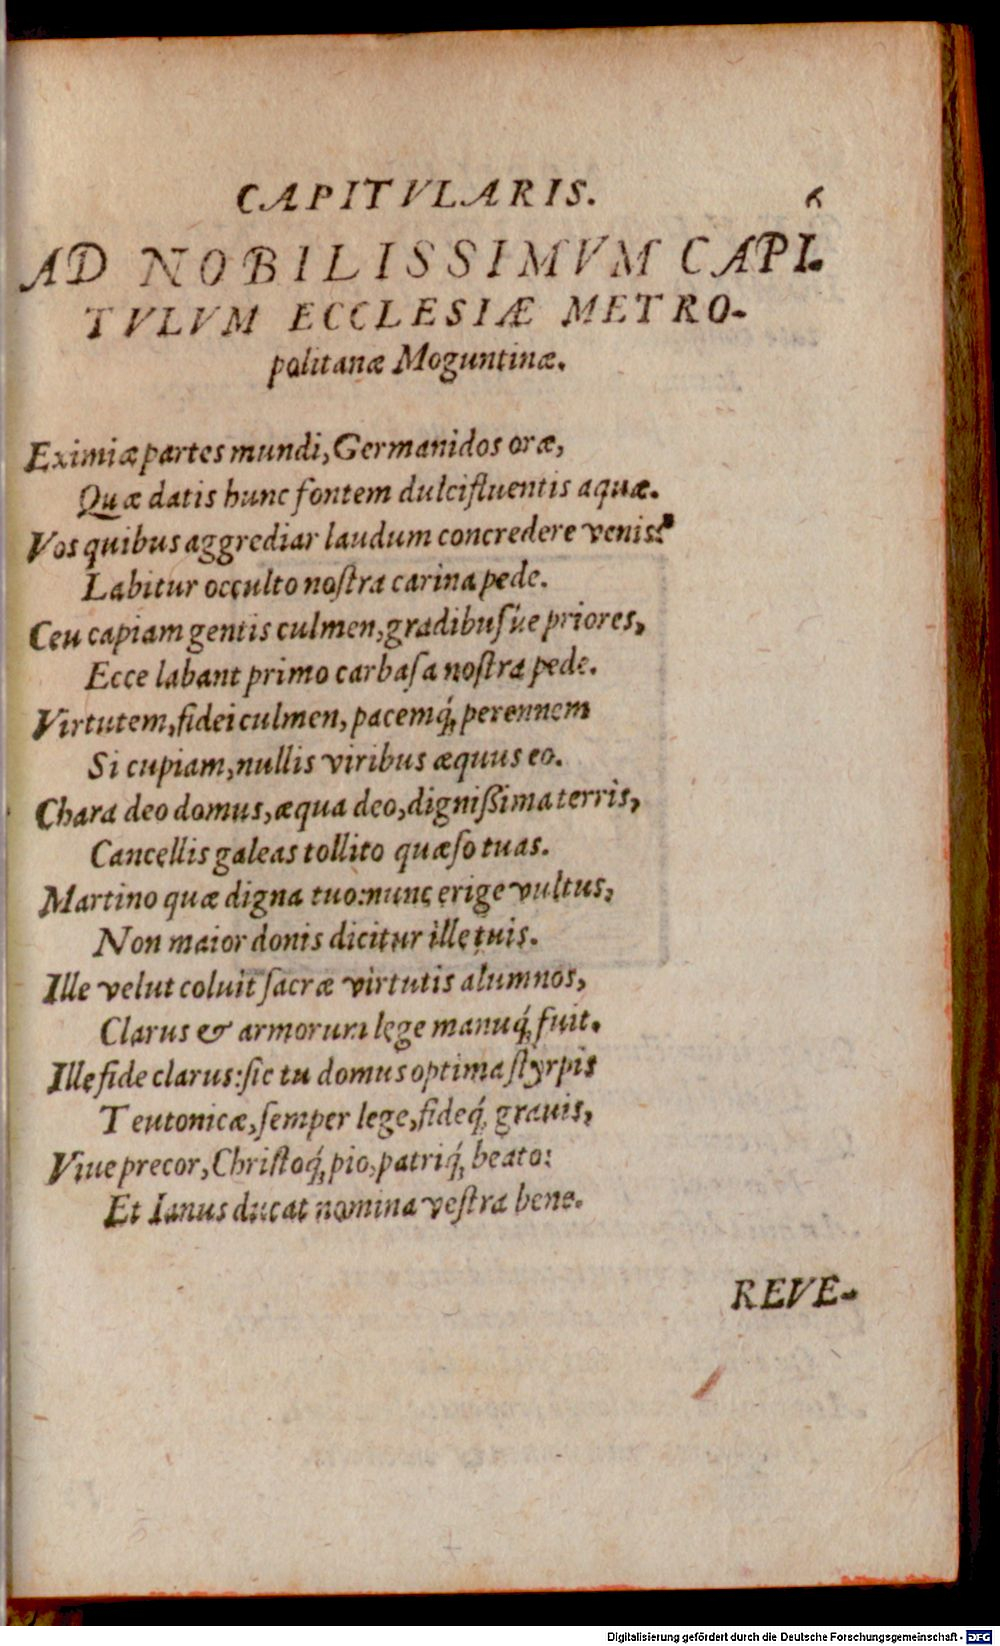 CAPITVLARIS. 6
AD NOBILISSIMVM CAPI-
TVLVM ECCLESIÆ METRO-
politanæ Moguntinæ.
Eximiæ partes mundi, Germanidos oræ,
Quæ datis hunc fontem dulcifluentis aquæ.
Vos quibus aggrediar laudum concredere venis?
Labitur occulto noſtra carina pede.
Ceu capiam gentis culmen, gradibuſúe priores,
Ecce labant primo carbaſa noſtra pede.
Virtutem, fidei culmen, pacemq́; perennem
Si cupiam, nullis viribus æquus eo.
Chara deo domus, æqua deo, digniſſima terris,
Cancellis galeas tollito quæſo tuas.
Martino quæ digna tuo: nunc erige vultus,
Non maior donis dicitur ille tuis.
Ille velut coluit ſacræ virtutis alumnos,
Clarus & armorum lege manuq́; fuit.
Ille fide clarus: ſic tu domus optima ſtyrpis
Teutonicæ, ſemper lege, fideq́; grauis,
Viue precor, Chriſtoq́; pio, patriq́; beato:
Et Ianus ducat nomina veſtra bene.
REVE-
Digitalisierung gefördert durch die Deutsche Forschungsgemeinschaft - DFG